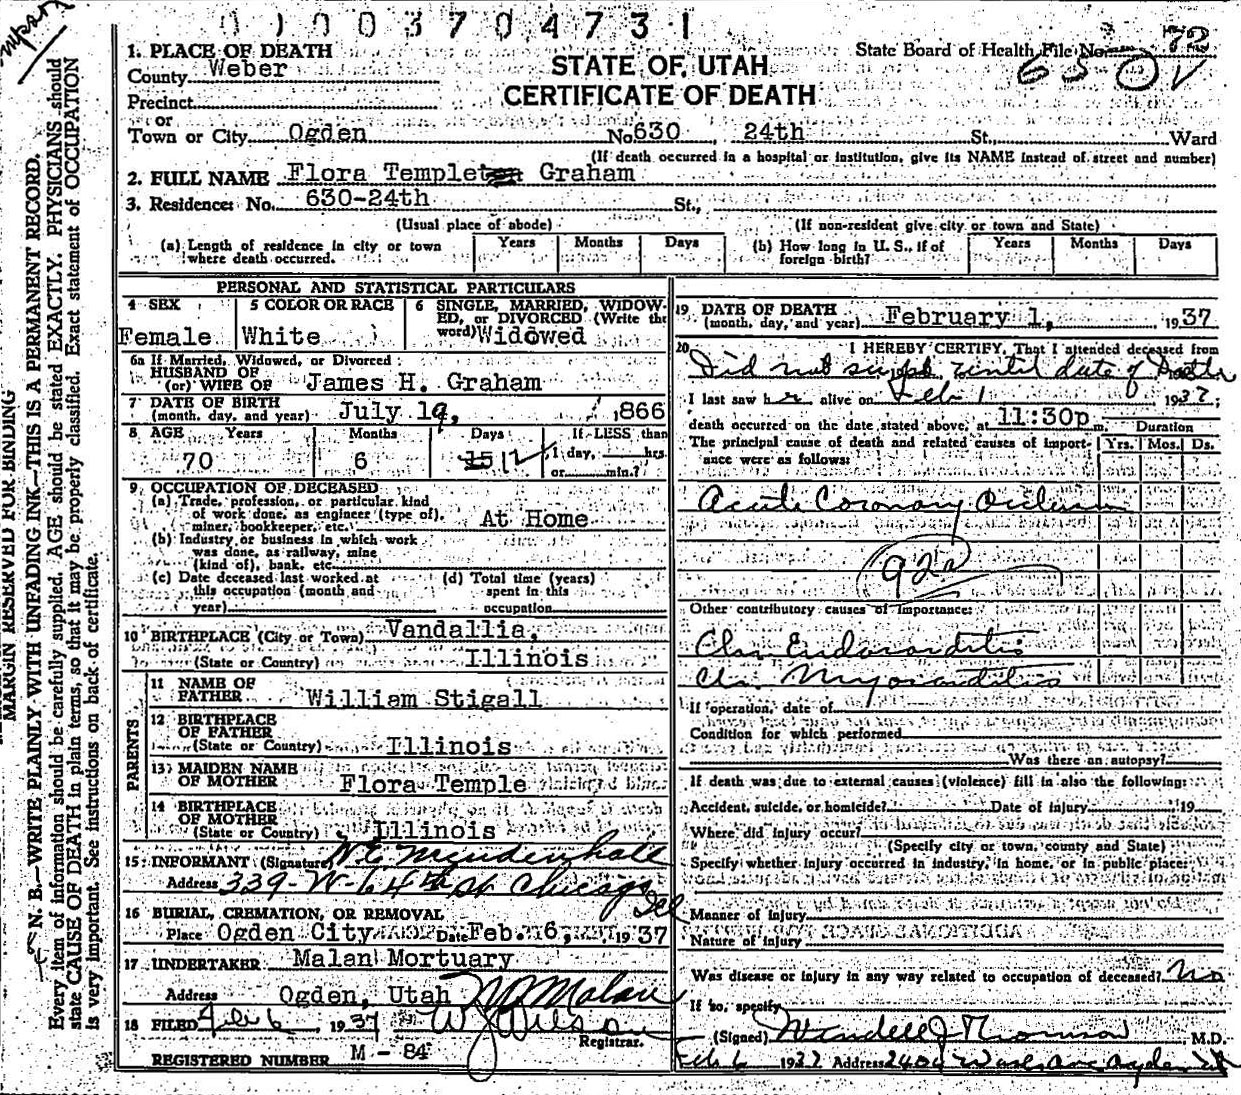 01003704731
1. PLACE OF DEATH
County Weber
State Board of Health File No. 72
650
STATE OF UTAH
CERTIFICATE OF DEATH
Precinct
or
Town or City Ogden No. 630 24th St., Ward
(If death occurred in a hospital or institution, give its NAME instead of street and number)
2. FULL NAME Flora Temple Graham
3. Residence: No. 630-24th St.,
(Usual place of abode) (If non-resident give city or town and State)
(a) Length of residence in city or town where death occurred. Years Months Days (b) How long in U. S., if of foreign birth? Years Months Days
PERSONAL AND STATISTICAL PARTICULARS
4 SEX Female
5 COLOR OR RACE White
6 SINGLE, MARRIED, WIDOWED, or DIVORCED (Write the word) Widowed
6a If Married, Widowed, or Divorced
HUSBAND OF
(or) WIFE OF James H. Graham
7 DATE OF BIRTH
(month, day, and year) July 19, 1866
8 AGE Years Months Days If LESS than
70 6 15 12 1 day, hrs.
or min.?
9. OCCUPATION OF DECEASED
(a) Trade, profession, or particular kind
of work done, as engineer (type of),
miner, bookkeeper, etc. At Home
(b) Industry or business in which work
was done, as railway, mine
(kind of), bank, etc.
(c) Date deceased last worked at
this occupation (month and
year)
(d) Total time (years)
spent in this
occupation
10 BIRTHPLACE (City or Town) Vandallia,
(State or Country) Illinois
PARENTS
11 NAME OF
FATHER William Stigall
12 BIRTHPLACE
OF FATHER
(State or Country) Illinois
13 MAIDEN NAME
OF MOTHER Flora Temple
14 BIRTHPLACE
OF MOTHER
(State or Country) Illinois
15 INFORMANT (Signature) W E Mendenhall
Address 339-W-64th St Chicago Ill
16 BURIAL, CREMATION, OR REMOVAL
Place Ogden City Date Feb. 6, 1937
17 UNDERTAKER Malan Mortuary
Address Ogden, Utah Malan
18 FILED Feb 6, 1937 W J Wilson
Registrar.
REGISTERED NUMBER M - 84
19 DATE OF DEATH
(month, day, and year) February 1, 1937
20 I HEREBY CERTIFY, That I attended deceased from
Did not see until date of Death
I last saw her alive on Feb 1 1937;
death occurred on the date stated above, at 11:30p m. Duration
The principal cause of death and related causes of importance were as follows: Yrs. Mos. Ds.
Acute Coronary Occlusion
92a
Other contributory causes of importance:
Chr Endocarditis
Chr. Myocarditis
If operation, date of
Condition for which performed
Was there an autopsy?
If death was due to external causes (violence) fill in also the following:
Accident, suicide, or homicide? Date of injury 19
Where did injury occur?
(Specify city or town, county and State)
Specify whether injury occurred in industry, in home, or in public place:
Manner of injury
Nature of injury
Was disease or injury in any way related to occupation of deceased? No
If so, specify
(Signed) Wendell J Thomson, M.D.
Feb 6 1937 Address 2404 Wash Ave Ogden Ut
MARGIN RESERVED FOR BINDING
N. B.—WRITE PLAINLY WITH UNFADING INK—THIS IS A PERMANENT RECORD.
Every item of information should be carefully supplied. AGE should be stated EXACTLY. PHYSICIANS should
state CAUSE OF DEATH in plain terms, so that it may be properly classified. Exact statement of OCCUPATION
is very important. See instructions on back of certificate.